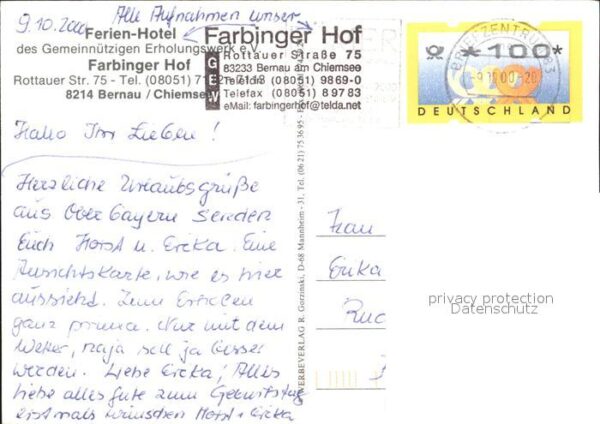 9.10.2000 Alle Aufnahmen unser
Ferien-Hotel
des Gemeinnützigen Erholungswerk e.V.
Farbinger Hof
Rottauer Str. 75 - Tel. (08051)
8214 Bernau / Chiemsee
Farbinger Hof
GEW
Rottauer Straße 75
83233 Bernau am Chiemsee
Telefon (08051) 9869-0
Telefax (08051) 89783
eMail: farbingerhof@telda.net
BRIEFZENTRUM 83
-9.10.00-20
*100*
DEUTSCHLAND
Hallo Ihr Lieben!
Herzliche Urlaubsgrüße
aus Oberbayern senden
Euch Horst u. Erika. Eine
Ansichtskarte, wie es hier
aussieht. Zum Erholen
ganz prima. Nur mit dem
Wetter, naja soll ja besser
werden. Liebe Erika, Alles
liebe alles gute zum Geburtstag
erstmals wünschen Horst + Erika
WERBEVERLAG R. Gorzinski, D-68 Mannheim - 31, Tel. (06 21) 75 36 95
Frau
Erika
privacy protection
Datenschutz